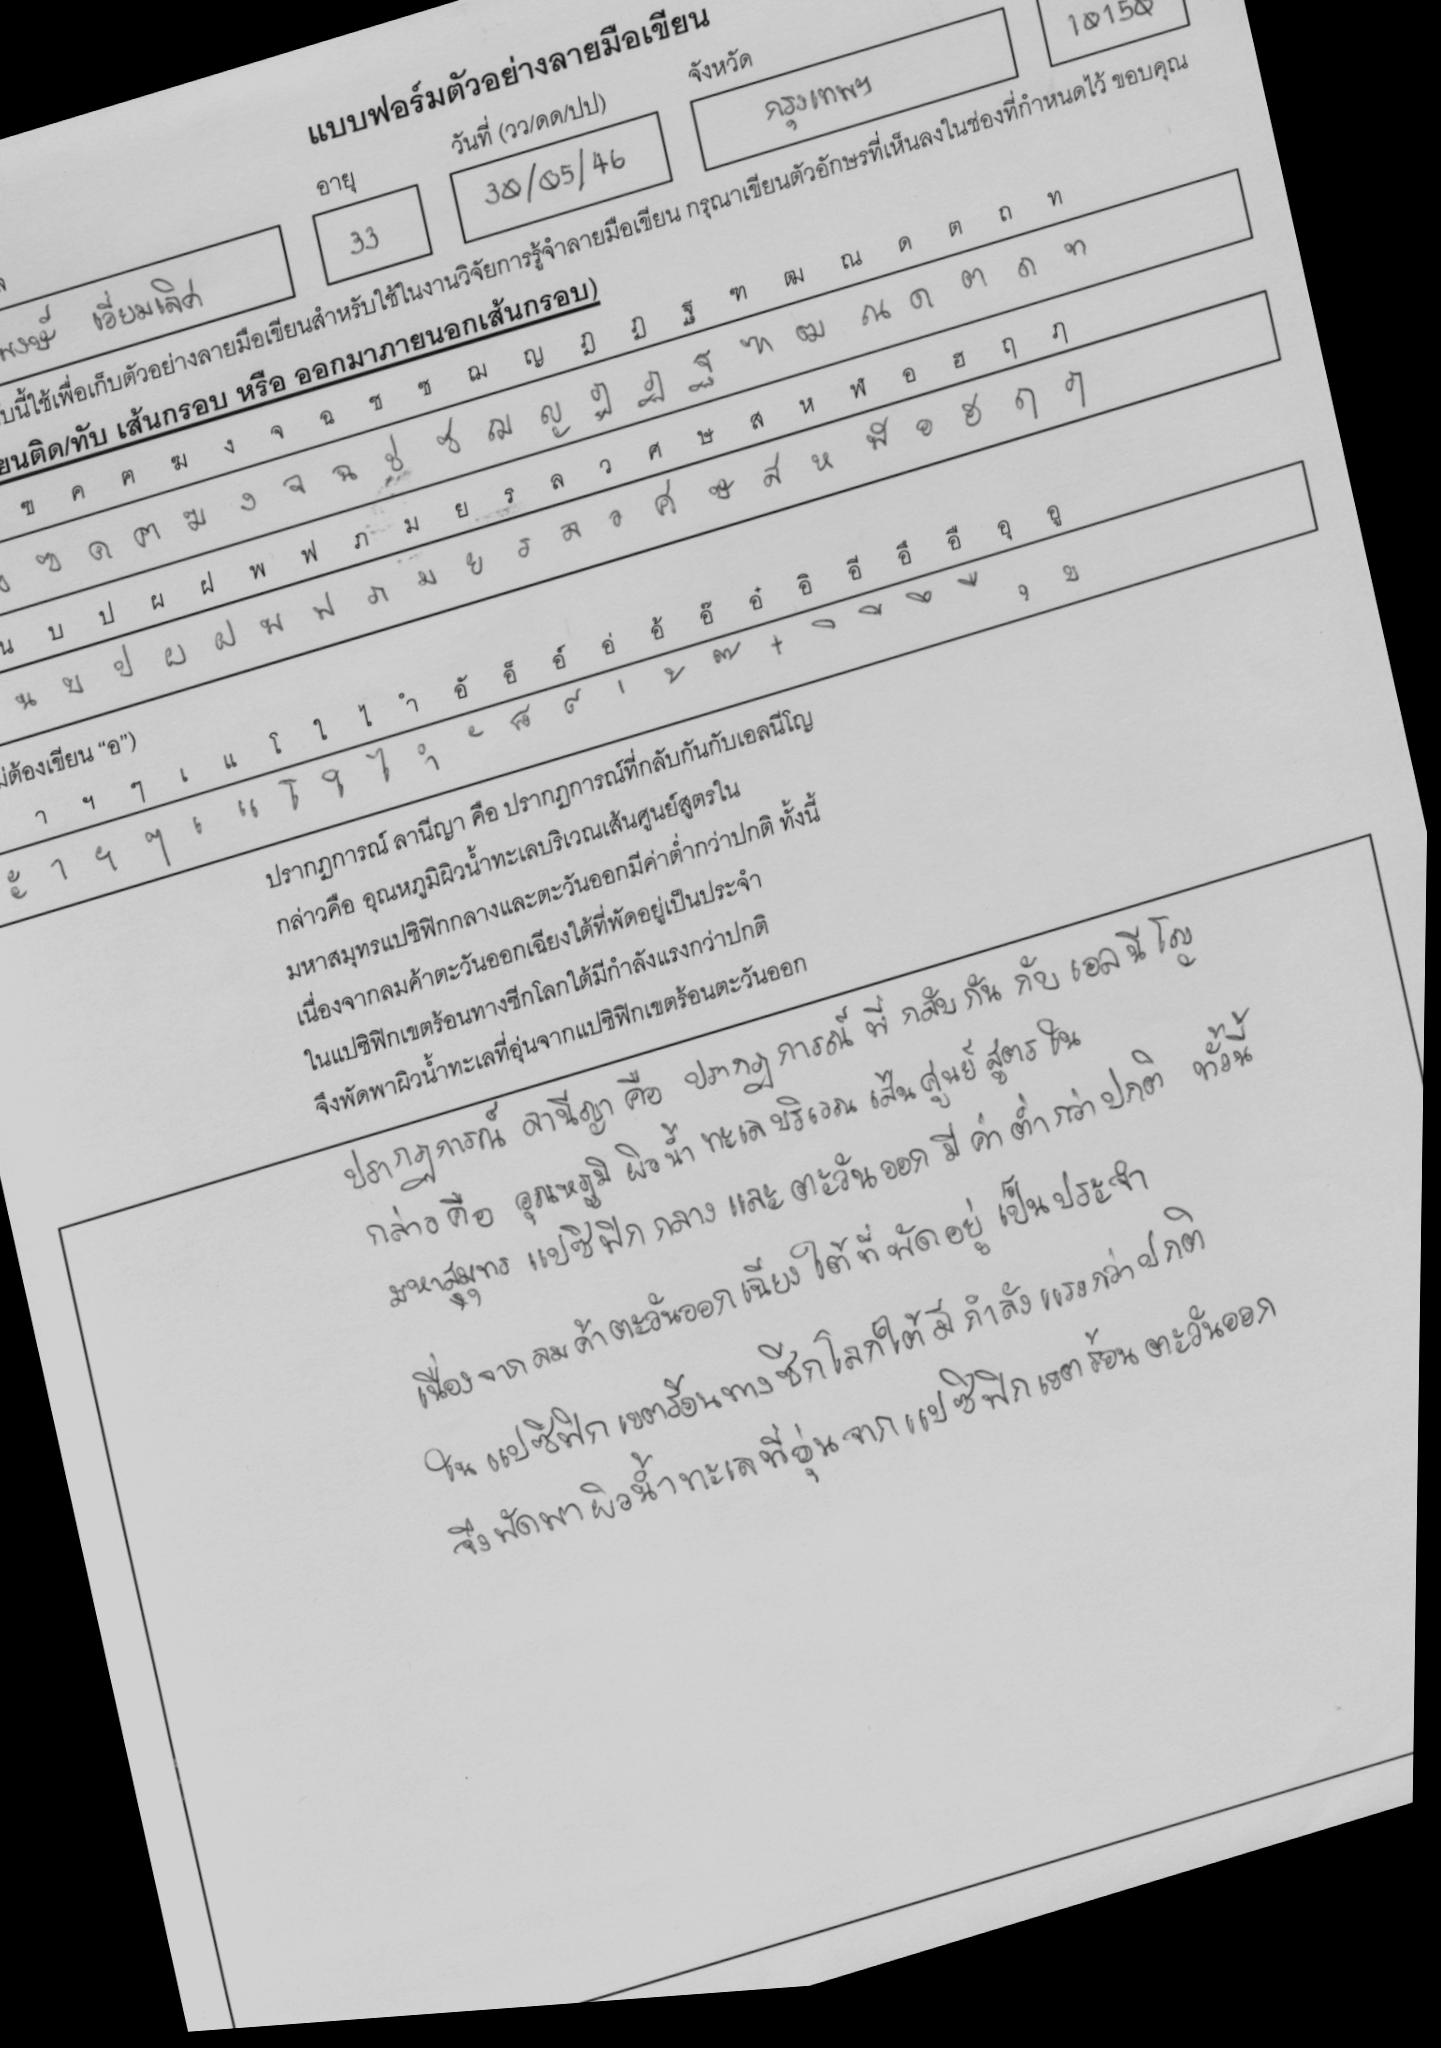 แบบฟอร์มตัวอย่างลายมือเขียน
อายุ วันที่ (วว/ดด/ปป) จังหวัด
เอี่ยมเลิศ 33 30/05/46 กรุงเทพฯ 10150
นี้ใช้เพื่อเก็บตัวอย่างลายมือเขียนสำหรับใช้ในงานวิจัยการรู้จำลายมือเขียน กรุณาเขียนตัวอักษรที่เห็นลงในช่องที่กำหนดไว้ ขอบคุณ
ยนติด/ทับ เส้นกรอบ หรือ ออกมาภายนอกเส้นกรอบ)
ฃ ค ฅ ฆ ง จ ฉ ช ซ ฌ ญ ฎ ฏ ฐ ฑ ฒ ณ ด ต ถ ท
ฃ ค ฅ ฆ ง จ ฉ ช ซ ฌ ญ ฎ ฏ ฐ ฑ ฒ ณ ด ต ถ ท
น บ ป ผ ฝ พ ฟ ภ ม ย ร ล ว ศ ษ ส ห ฬ อ ฮ ฤ ฦ
น บ ป ผ ฝ พ ฟ ภ ม ย ร ล ว ศ ษ ส ห ฬ อ ฮ ฤ ฦ
ม่ต้องเขียน “อ”)
า ฯ ๆ เ แ โ ใ ไ ำ อั อ็ อ์ อ่ อ้ อ๊ อ๋ อิ อี อึ อื อุ อู
ะ า ฯ ๆ เ แ โ ใ ไ ำ ั ็ ์ ่ ้ ๊ ๋ ิ ี ึ ื ุ ู
ปรากฏการณ์ ลานีญา คือ ปรากฏการณ์ที่กลับกันกับเอลนีโญ
กล่าวคือ อุณหภูมิผิวน้ำทะเลบริเวณเส้นศูนย์สูตรใน
มหาสมุทรแปซิฟิกกลางและตะวันออกมีค่าต่ำกว่าปกติ ทั้งนี้
เนื่องจากลมค้าตะวันออกเฉียงใต้ที่พัดอยู่เป็นประจำ
ในแปซิฟิกเขตร้อนทางซีกโลกใต้มีกำลังแรงกว่าปกติ
จึงพัดพาผิวน้ำทะเลที่อุ่นจากแปซิฟิกเขตร้อนตะวันออก
ปรากฏการณ์ ลานีญา คือ ปรากฏการณ์ ที่ กลับกัน กับ เอลนีโญ
กล่าวคือ อุณหภูมิ ผิวน้ำ ทะเล บริเวณ เส้น ศูนย์ สูตร ใน
มหาสมุทร แปซิฟิก กลาง และ ตะวันออก มี ค่า ต่ำ กว่า ปกติ ทั้งนี้
เนื่อง จาก ลม ค้า ตะวันออก เฉียง ใต้ ที่ พัด อยู่ เป็น ประจำ
ใน แปซิฟิก เขตร้อน ทาง ซีกโลกใต้ มี กำลัง แรง กว่า ปกติ
จึง พัดพา ผิวน้ำ ทะเล ที่ อุ่น จาก แปซิฟิก เขตร้อน ตะวันออก